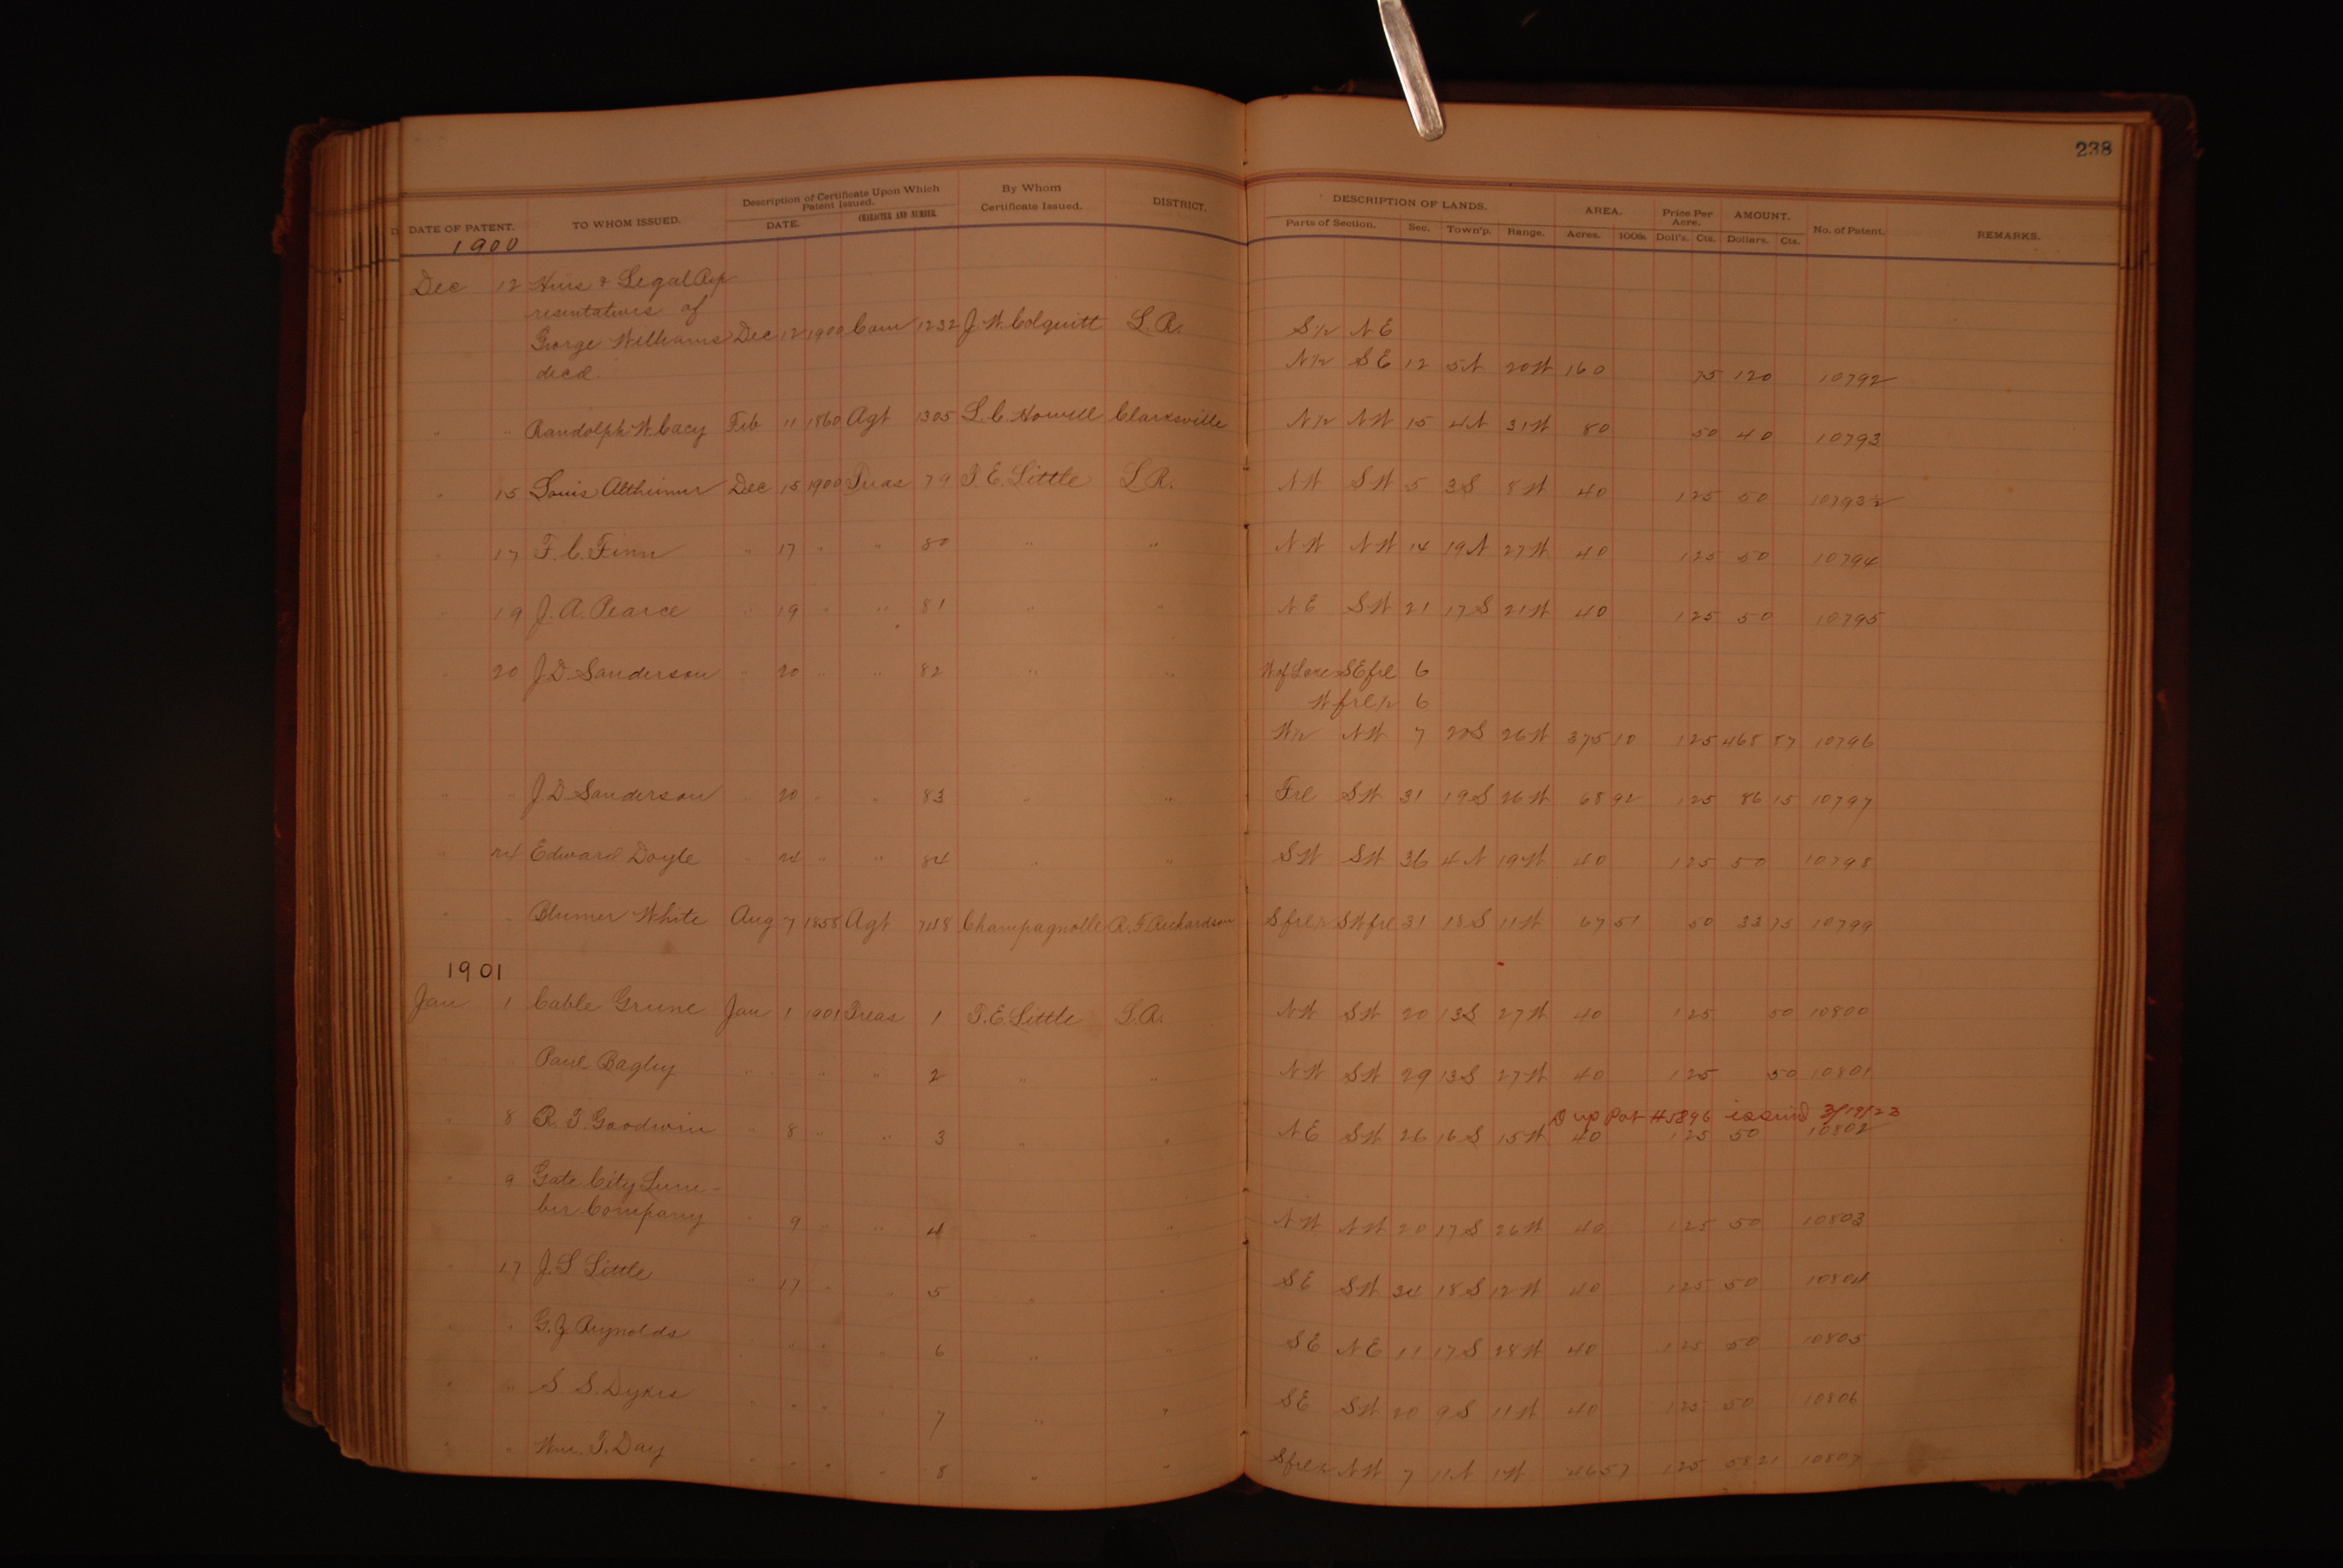 238
DATE OF PATENT. TO WHOM ISSUED. Description of Certificate Upon Which Patent Issued. DATE. CHARACTER AND NUMBER. By Whom Certificate Issued. DISTRICT. DESCRIPTION OF LANDS. Parts of Section. Sec. Town'p. Range. AREA. Acres. 100s. Price Per Acre. Doll's. Cts. AMOUNT. Dollars. Cts. No. of Patent. REMARKS.
1900
Dec 12 Heirs & Legal Rep
resentatives of
George Williams Dec 12 1900 Com 1232 J. W. Colquitt L.R. S½ NE
decd. N½ SE 12 5N 20W 160 75 120 10792
" " Randolph W. Cacy Feb 11 1860 Agt 1305 L. C. Howell Clarksville N½ NW 15 4N 31W 80 50 40 10793
" 15 Louis Altheimer Dec 15 1900 Treas 79 T. E. Little L.R. NW SW 5 3S 8W 40 125 50 10793½
" 17 F. C. Finn " 17 " " 80 " " NW NW 14 19N 27W 40 125 50 10794
" 19 J. A. Pearce " 19 " " 81 " " NE SW 21 17S 21W 40 125 50 10795
" 20 J. D. Sanderson " 20 " " 82 " " W of Lake SE frl 6
W frl ½ 6
W½ NW 7 20S 26W 375 10 125 468 87 10796
" " J D Sanderson " 20 " " 83 " " Frl SW 31 19S 26W 68 92 125 86 15 10797
" 24 Edward Doyle " 24 " " 84 " " SW SW 36 4N 19W 40 125 50 10798
" " Blumer White Aug 7 1858 Agt 748 Champagnolle R. F. Richardson S frl ½ SW frl 31 18S 11W 67 51 50 33 75 10799
1901
Jan 1 Cable Grune Jan 1 1901 Treas 1 T. E. Little L.R. NW SW 20 13S 27W 40 125 50 10800
" " Paul Bagley " " " " 2 " " NW SW 29 13S 27W 40 125 50 10801
Dup Pat #5896 issued 3/19/23
" 8 R. T. Goodwin " 8 " " 3 " " NE SW 26 16S 15W 40 125 50 10802
" 9 Gate City Lum-
ber Company " 9 " " 4 " " NW NW 20 17S 26W 40 125 50 10803
" 17 J. S Little " 17 " " 5 " " SE SW 34 18S 12W 40 125 50 10804
" " G. Z Reynolds " " " " 6 " " SE NE 11 17S 28W 40 125 50 10805
" " S. S. Dykes " " " " 7 " " SE SW 20 9S 11W 40 125 50 10806
" " Wm. T. Day " " " " 8 " " S frl ½ NW 7 11N 1W 46 57 125 58 21 10807